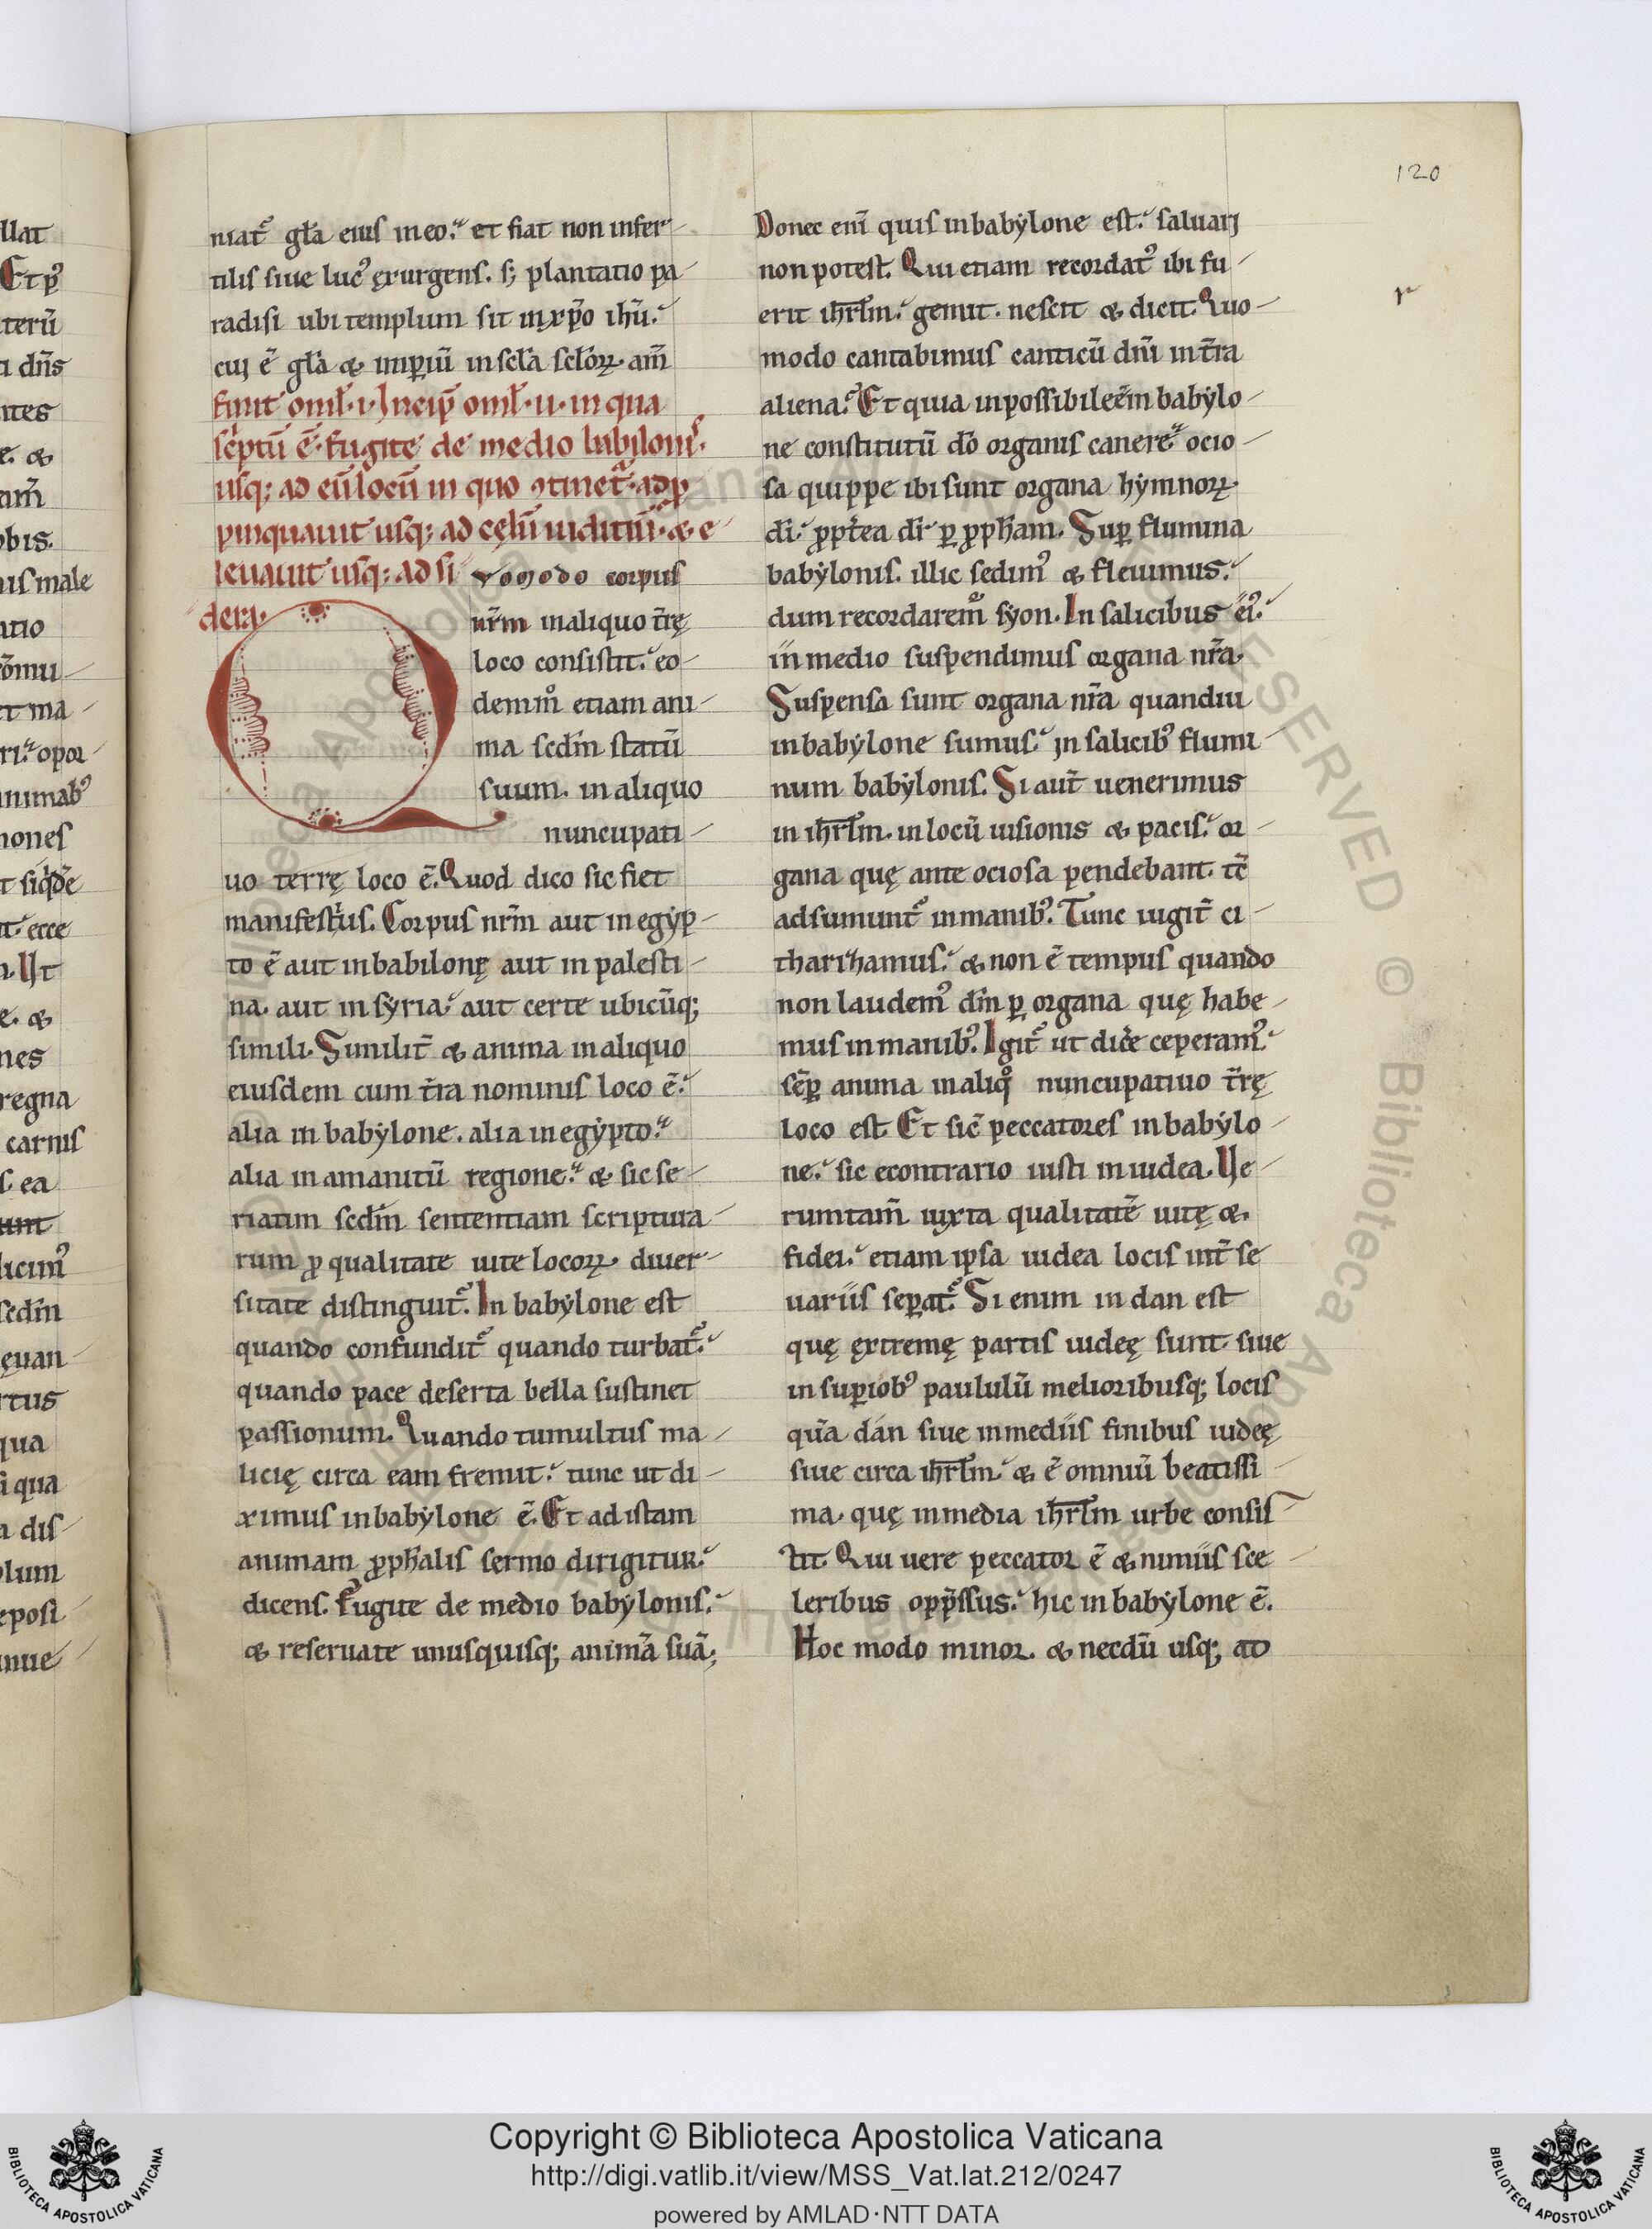 120
niat᷑ gl̃a eius in eo. et fiat non infer
tilis siue luc᷒ exurgens. s; plantatio pa
radisi ubi templum sit in xp̃o ihũ.
cui ẽ gl̃a & imp̲iũ in scl̃a scl̃oꝝ. am̃
finit omł. i. Incip̃ omł. ii. in qua
sc̃ptũ ẽ. fugite de medio babilonis.
usq; ad eũ locũ in quo ꝯtinet᷑. adp̱
pinquauit usq; ad cęlũ iuditiũ. & e
leuauit usq; ad si
dera.
Quomodo corpus
nr̃m in aliquo t̃rę
loco consistit. eo
dem mͦ etiam ani
ma scđm statũ
suum. in aliquo
nuncupati
uo terrę loco ẽ. Quod dico sic fiet
manifestius. Corpus nr̃m aut in egẏp
to ẽ aut in babilonę aut in palesti
na. aut in sẏria. aut certe ubicũq;
simili. Similit̃ & anima in aliquo
eiusdem cum t̃ra nominis loco ẽ.
alia in babẏlone. alia in egẏpto.
alia in amanitũ regione. & sic se
riatim scđm sententiam scriptura
rum ꝓ qualitate uite locoꝝ. diuer
sitate distinguit᷑. In babẏlone est
quando confundit᷑ quando turbat᷑.
quando pace deserta bella sustinet
passionum. Quando tumultus ma
licię circa eam fremit. tunc ut di
ximus in babẏlone ẽ. Et ad istam
animam ꝓph̃alis sermo dirigitur.
dicens. Fugite de medio babẏlonis.
& reseruate unusquisq; animã suã;
Donec enĩ quis in babẏlone est. saluari
non potest. Qui etiam recordat᷒ ibi fu
erit ihrl̃m. gemit. nescit & dicit. Quo
modo cantabimus canticũ dñi in t̃ra
aliena. Et quia inpossibile ẽ in babẏlo
ne constitutũ dõ organis canere. ocio
sa quippe ibi sunt organa hẏmnoꝝ.
dĩ. ꝓpt̃ea dr̃ ꝑ ꝓph̃am. Suꝑ flumina
babẏlonis. illic sedim᷒ & fleuimus.
dum recordarem᷒ sẏon. In salicibus ei᷒.
in medio suspendimus organa nr̃a.
Suspensa sunt organa nr̃a quandiu
in babẏlone sumus. in salicib᷒ flumi
num babẏlonis. Si aut̃ uenerimus
in ihrl̃m. in locũ uisionis & pacis. or
gana quę ante ociosa pendebant. tc̃
adsumunt᷑ in manib᷒. Tunc iugit̃ ci
tharizamus. & non ẽ tempus quando
non laudem᷒ dm̃ ꝑ organa quę habe
mus in manib᷒. Igit᷑ ut dic̃e ceperam᷒.
sẽꝑ anima in aliqͦ nuncupatiuo t̃rę
loco est. Et sic̃ peccatores in babẏlo
ne. sic econtrario iusti in iudea. Ue
rumtam̃ iuxta qualitatẽ uitę &
fidei. etiam ipsa iudea locis int̃ se
uariis seꝑat᷑. Si enim in dan est
quę extremę partis iudeę sunt. siue
in suꝑiob᷒ paululũ melioribusq; locis
quã dán siue in mediis finibus iudeę
siue circa ihrl̃m. & ẽ omniũ beatissi
ma. quę in media ihrl̃m urbe consis
tit. Qui uere peccator ẽ & nimiis sce
leribus opp̃ssus. hic in babẏlone ẽ.
Hoc modo minor. & necdũ usq; ad
llat
terũ
ntes
e. &
obis.
us male
atio
et ma
nimab᷒
mones
ecce
e. &
nes
regna
carnis
ea
sedm̃
rtus
qua
dis
lum
Copyright © Biblioteca Apostolica Vaticana
http://digi.vatlib.it/view/MSS_Vat.lat.212/0247
powered by AMLAD·NTT DATA
BIBLIOTECA APOSTOLICA VATICANA
BIBLIOTECA APOSTOLICA VATICANA